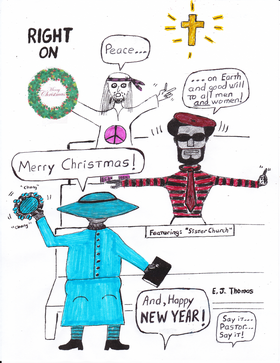 RIGHT
ON
Peace...
Merry
Christmas
... on Earth
and good will
to all men
and women!
Merry Christmas!
"Chang"
"Chang"
Featuring: "Sister Church"
E.J. Thomas
And, Happy
NEW YEAR!
Say it...
Pastor...
Say it!